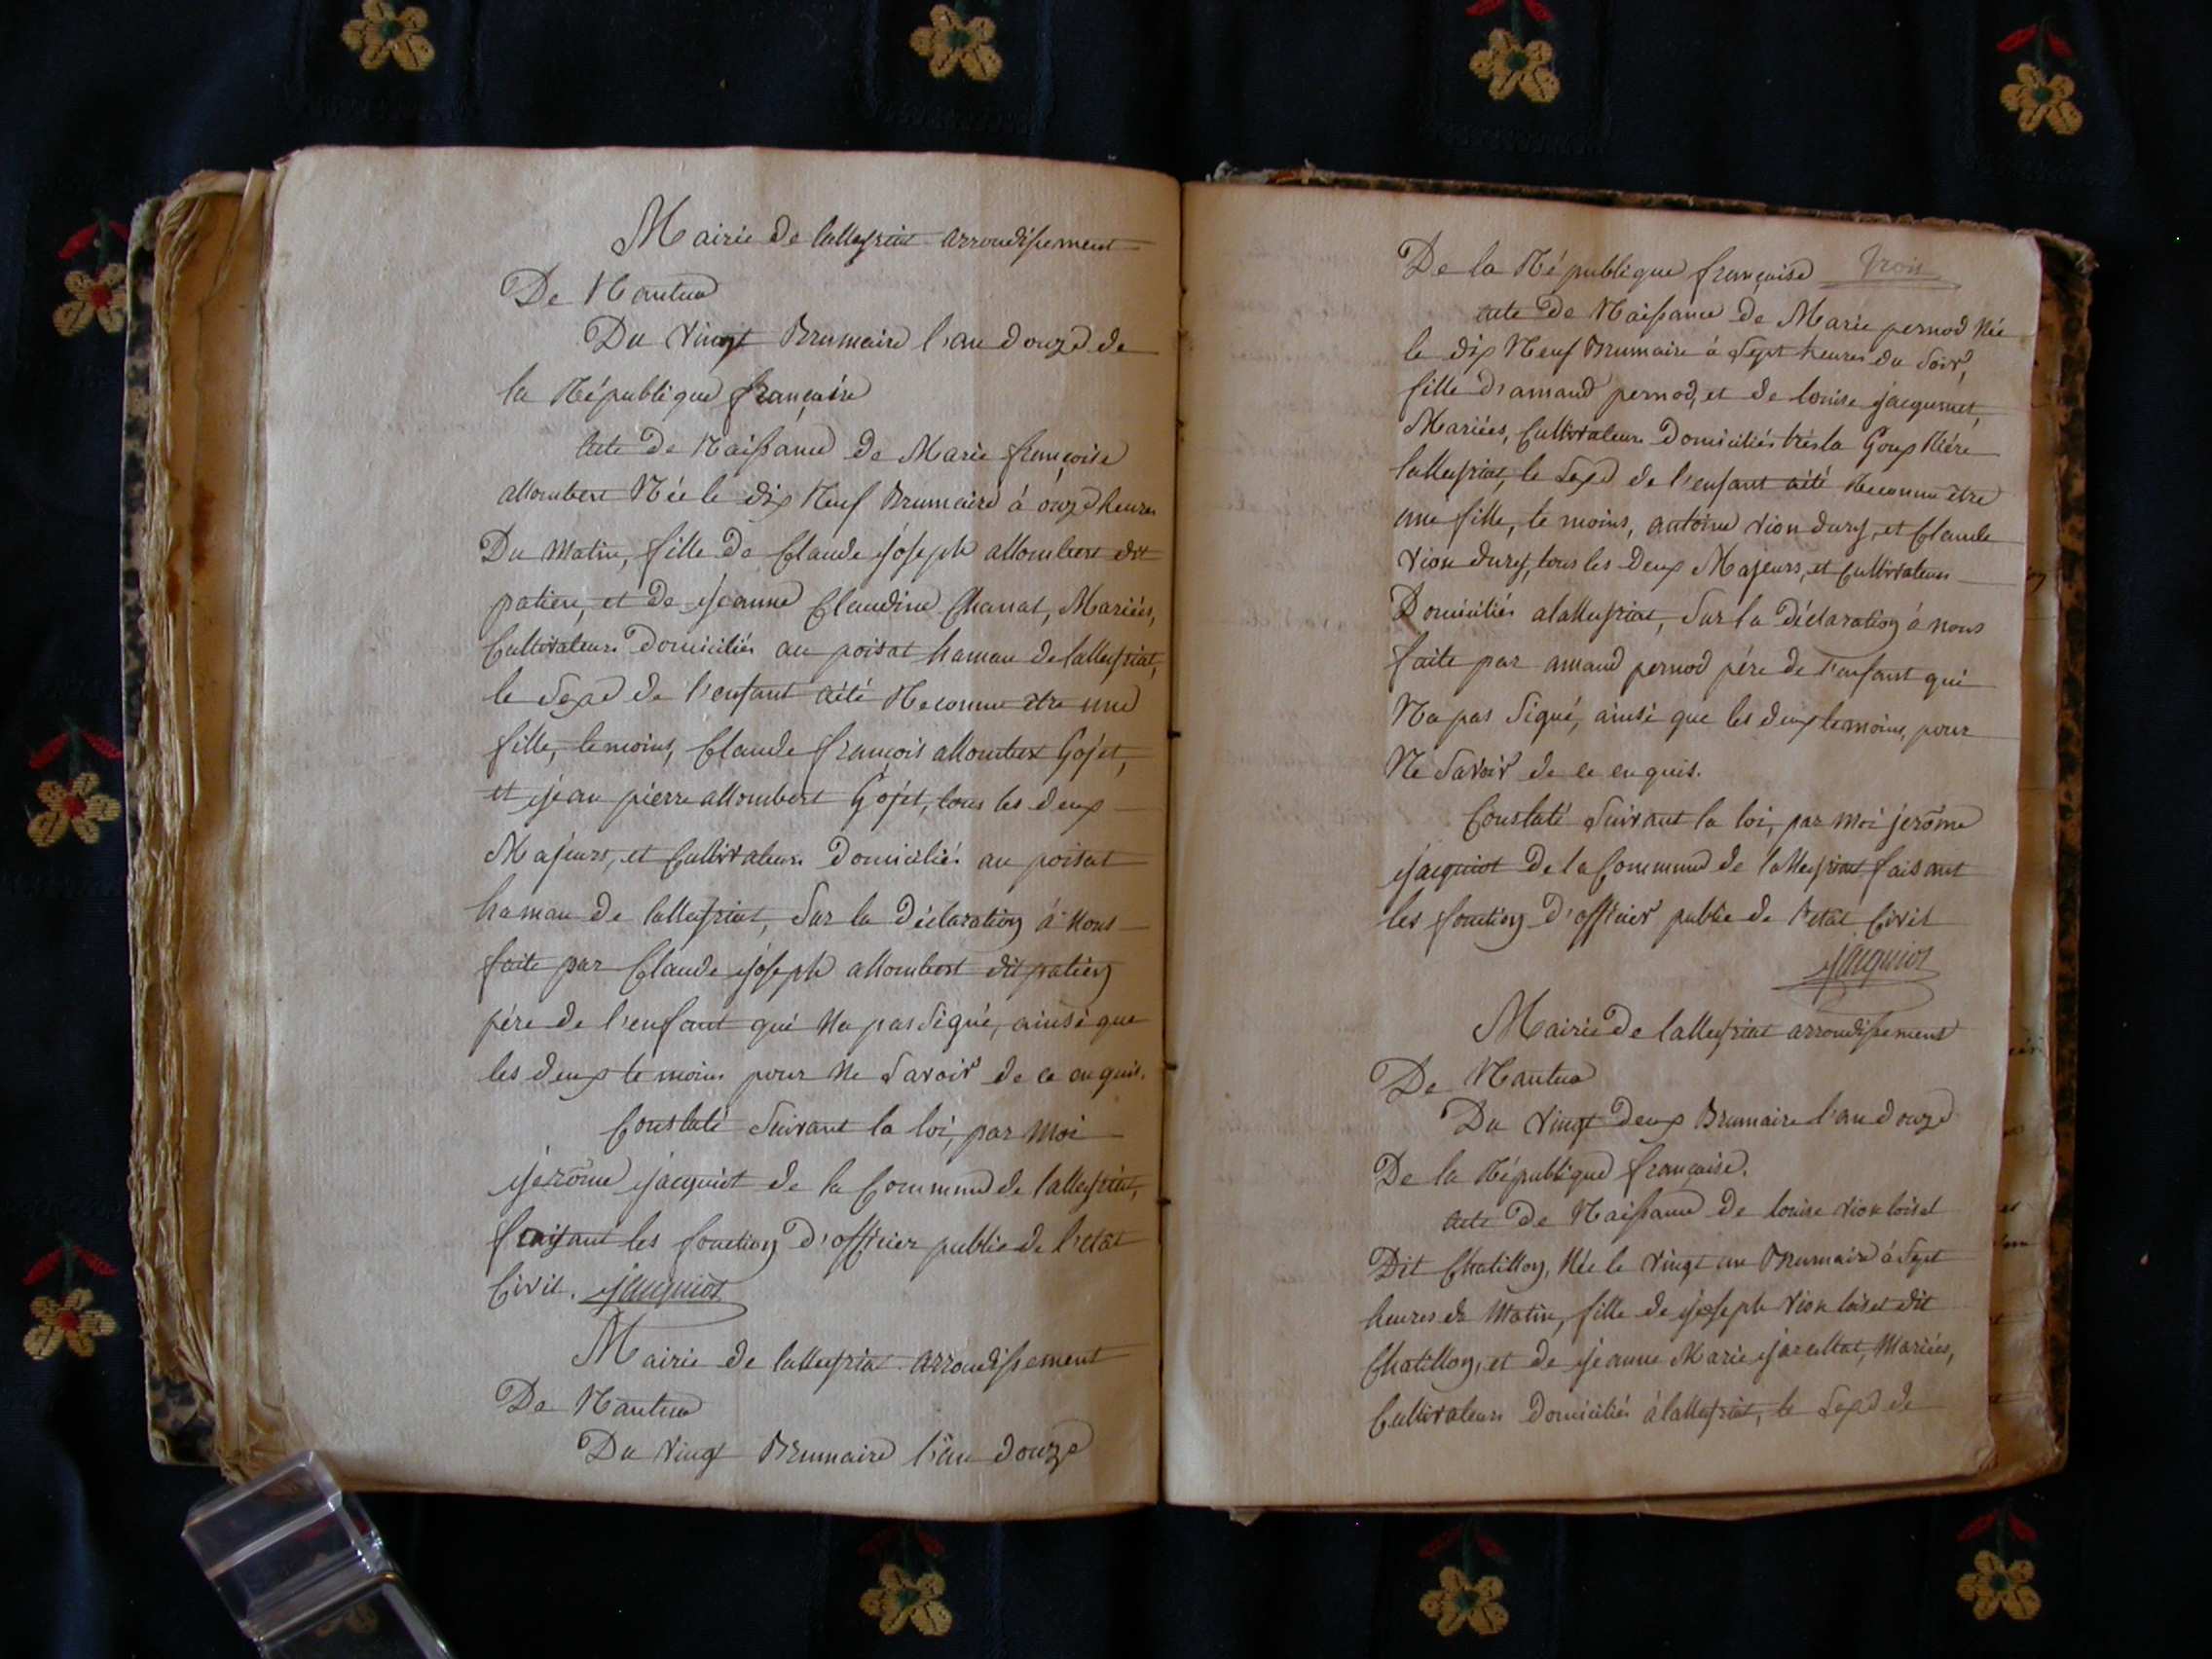 Mairie de lalleyriat arrondissement
De Nantua
Du vingt Brumaire l'an douze de
la République française
acte De Naissance De Marie françoise
allombert Née le dix Neuf Brumaire à onze heures
Du Matin, fille De Claude joseph allombert dit
patien, et De jeanne Claudine Chanat, Mariées,
Cultivateurs Domiciliés au poisat hamau de lalleyriat,
le Sexe de l'enfant aété Reconnu être une
fille, témoins, Claude françois allombert Gojet,
et jean pierre allombert Gojet, tous les deux
Majeurs, et Cultivateurs Domiciliés au poisat
hamau de lalleyriat, Sur la Déclaration à Nous
faite par Claude joseph allombert dit patien
pére de l'enfant qui Na pas Signé, ainsi que
les deux témoins pour Ne Savoir de ce enquis.
Constaté Suivant la loi, par Moi
jérôme jacquiot de la Commune de lalleyriat,
faisant les fonction D'officier public de l'etat
Civil. jacquiot
Mairie de lalleyriat arrondissement
De Nantua
Du vingt Brumaire l'an douze
De la République française trois
acte De Naissance De Marie pernod Née
le dix Neuf Brumaire à Sept heures du Soir,
fille D'amand pernod, et de louise jacquemet,
Mariées, Cultivateurs Domiciliés la
lalleyriat, le Sexe de l'enfant aété Reconnu être
une fille, témoins, antoine vion dury, et Claude
vion dury, tous les Deux Majeurs, et Cultivateurs
Domiciliés alalleyriat, Sur la Déclaration à nous
faite par amand pernod pére de l'enfant qui
Na pas Signé, ainsi que les deux témoins, pour
Ne Savoir de ce enquis.
Constaté Suivant la loi, par Moi jerôme
jacquiot De la Commune de lalleyriat faisant
les fonction D'officier public de l'etat Civil
jacquiot
Mairie De lalleyriat arrondissement
De Nantua
Du vingt Deux Brumaire l'an douze
De la République française.
acte De Naissance De louise vion loiset
Dit Chatillon, Née le vingt un Brumaire à Sept
heures du Matin, fille de joseph vion loiset dit
Chatillon, et de jeanne Marie, Mariées,
Cultivateurs Domiciliés à lalleyriat, le Sexe de